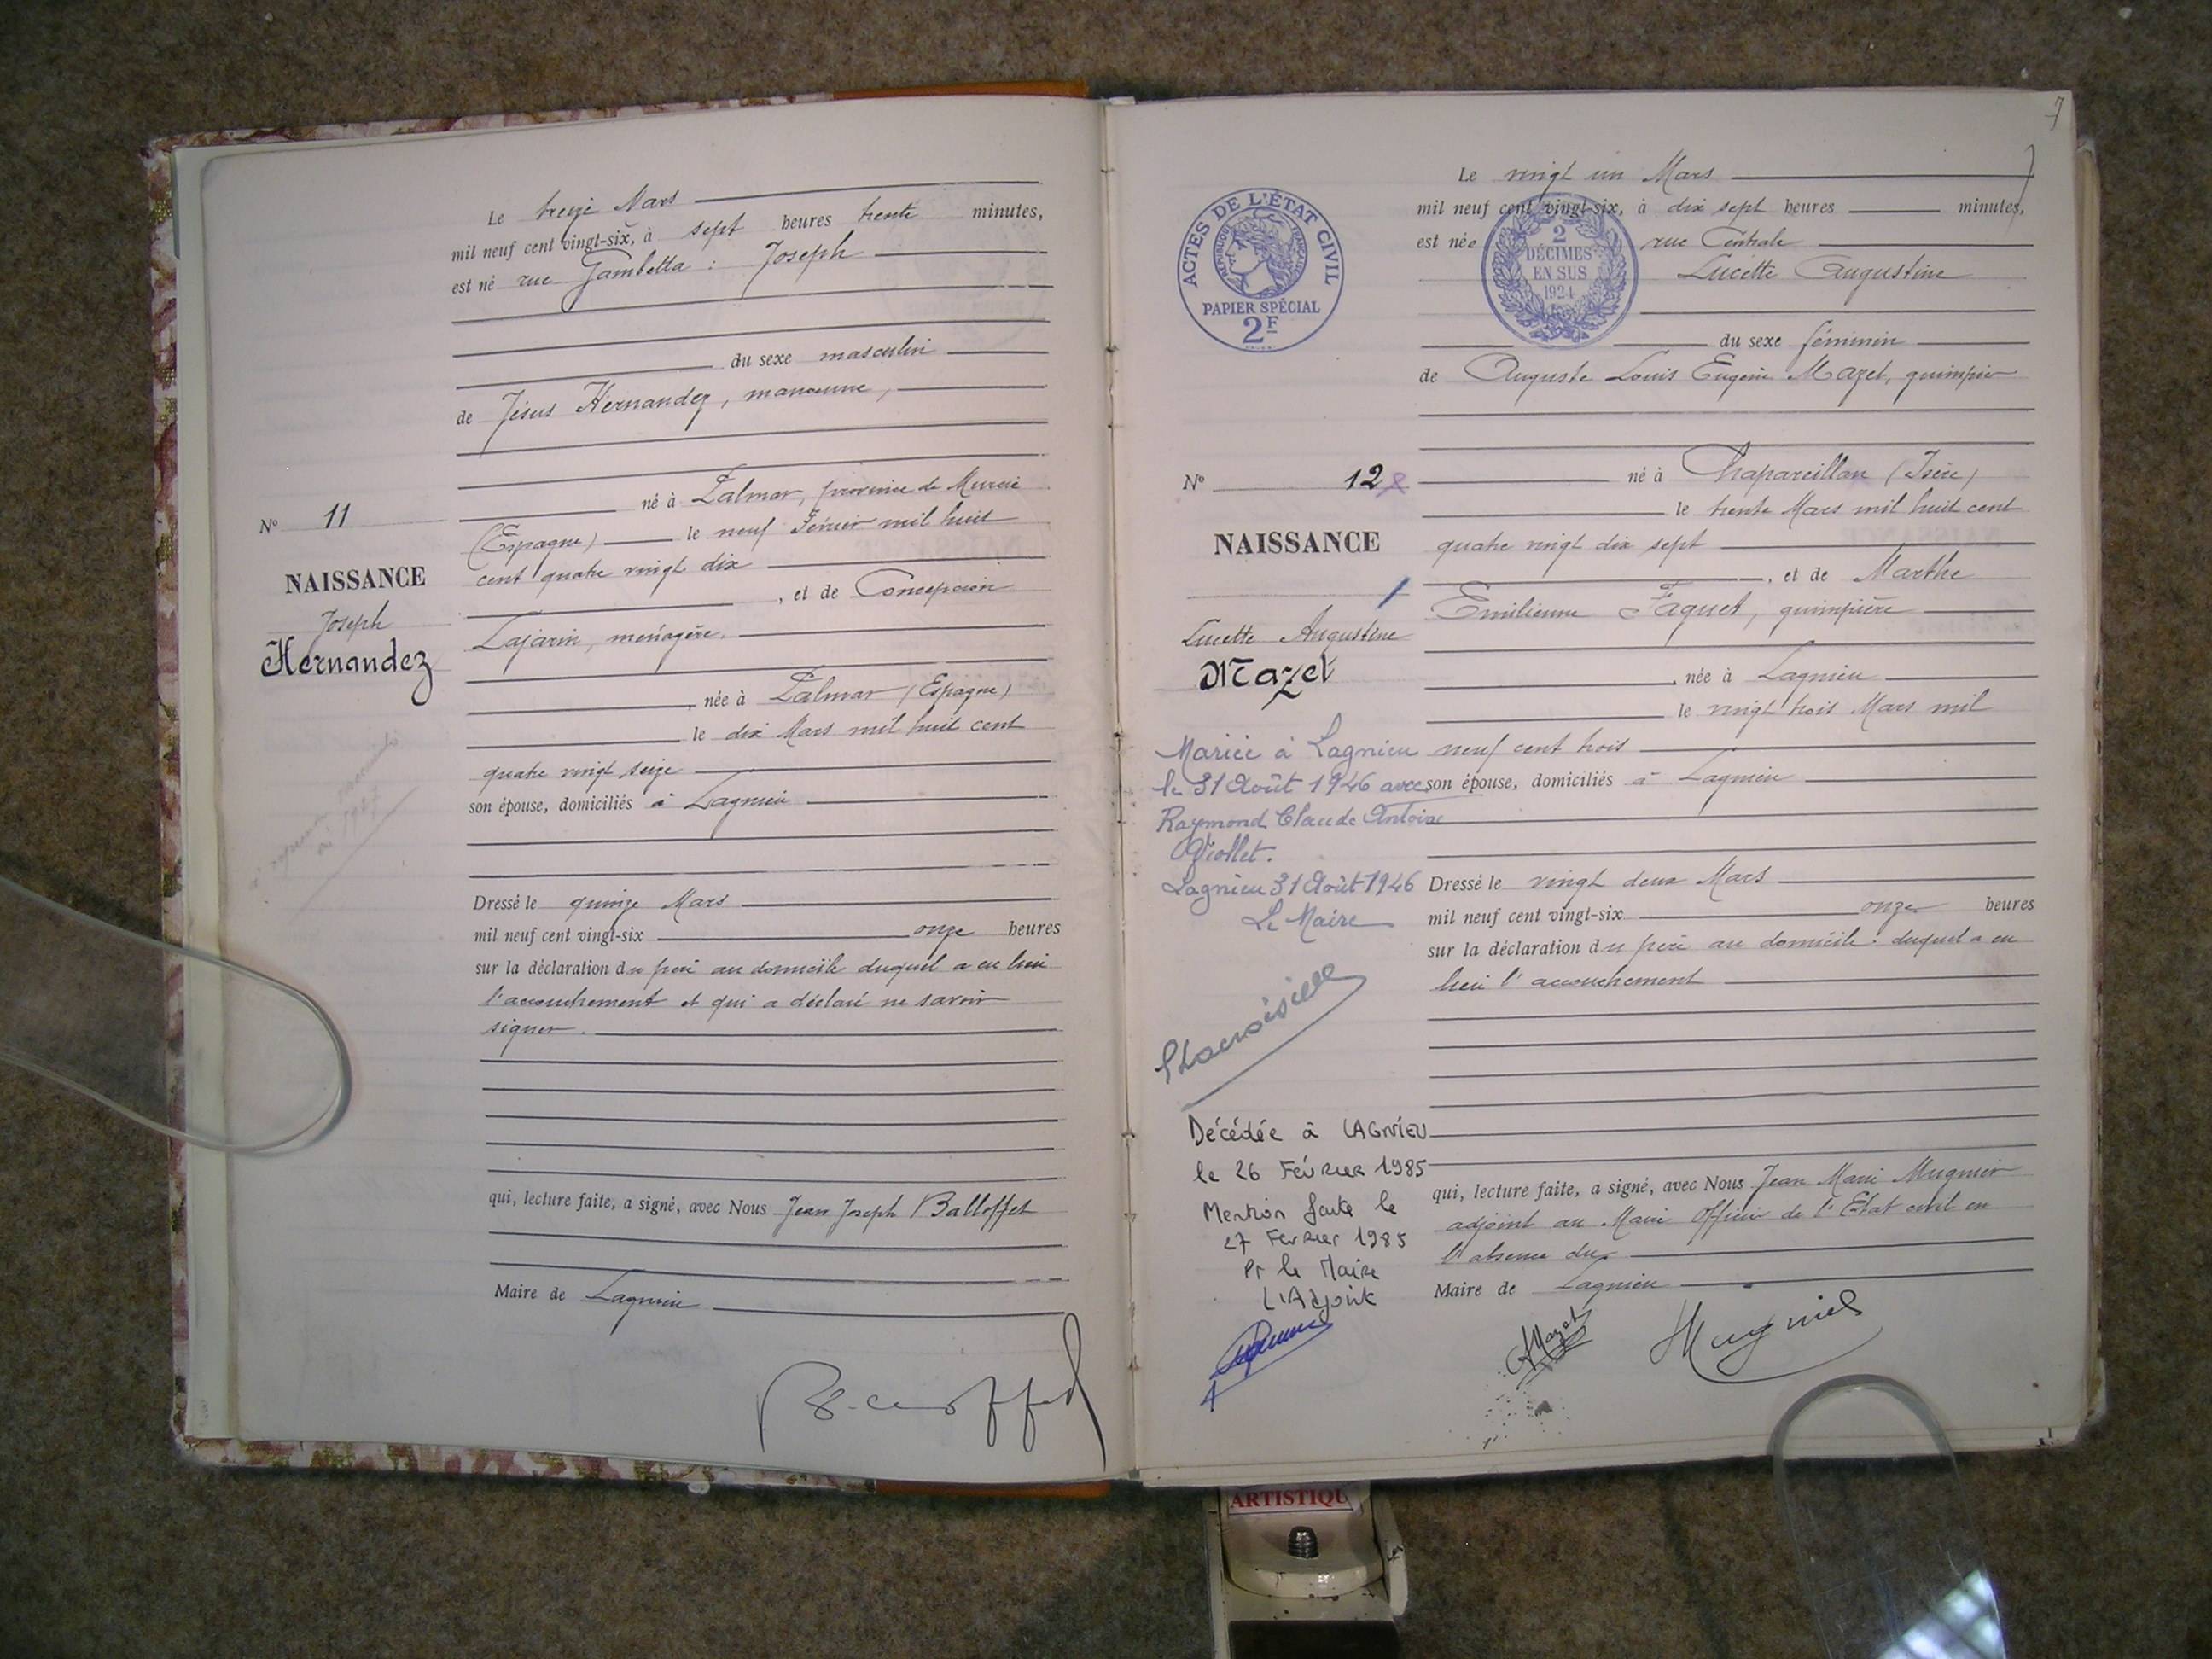 Le treize Mars
mil neuf cent vingt-six, à sept heures trente minutes,
est né rue Gambetta : Joseph
du sexe masculin
de Jésus Hernandez, manœuvre,
né à Palmar, province de Murcie
(Espagne) le neuf Février mil huit
cent quatre vingt dix
, et de Concepcion
Lajarin, ménagère.
, née à Palmar (Espagne)
le dix Mars mil huit cent
quatre vingt seize
son épouse, domiciliés à Lagnieu
Dressé le quinze Mars
mil neuf cent vingt-six onze heures
sur la déclaration du père au domicile duquel a eu lieu
l'accouchement et qui a déclaré ne savoir
signer.
qui, lecture faite, a signé, avec Nous Jean Joseph Balloffet
Maire de Lagnieu
Nº 11
NAISSANCE
Joseph
Hernandez
7
ACTES DE L'ÉTAT CIVIL
RÉPUBLIQUE FRANÇAISE
PAPIER SPÉCIAL
2F
2
DÉCIMES
EN SUS
1924
Le vingt un Mars
mil neuf cent vingt-six, à dix sept heures minutes,
est née rue Centrale
Lucette Augustine
du sexe féminin
de Auguste Louis Eugène Mazet, guimpier
né à Chapareillan (Isère)
le trente Mars mil huit cent
quatre vingt dix sept
, et de Marthe
Emilienne Faguet, guimpière
, née à Lagnieu
le vingt trois Mars mil
neuf cent trois
son épouse, domiciliés à Lagnieu
Dressé le vingt deux Mars
mil neuf cent vingt-six onze heures
sur la déclaration du père au domicile duquel a eu
lieu l'accouchement
qui, lecture faite, a signé, avec Nous Jean Marie Mugnier
adjoint au Maire Officier de l'Etat civil en
l'absence du
Maire de Lagnieu
AMazet
Mugnier
Nº 12
NAISSANCE
Lucette Augustine
Mazet
Mariée à Lagnieu
le 31 Août 1946 avec
Raymond Claude Antoine
Viollet.
Lagnieu 31 Août 1946
Le Maire
Décédée à LAGNIEU
le 26 Février 1985
Mention faite le
27 Février 1985
Pr le Maire
L'Adjoint
ARTISTIQU